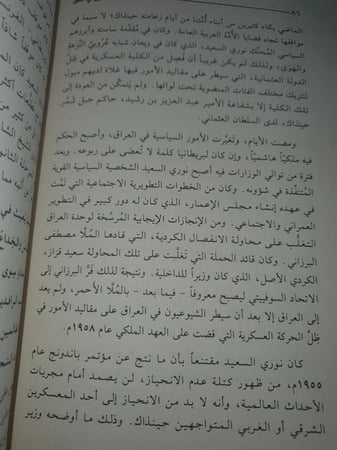 ٨٦
الماضي بكاء كثيرين من أبناء أمّتنا من أيام زعامته حينذاك؛ لا سيما في
مواقفها تجاه قضايا الأمّة العربية العامة. وكان في مقدّمة ساسته وأبرزهم
السياسي المُحنَّك نوري السعيد، الذي كان في ريعان شبابه عُروبيَّ النَّزعة
والهَوى، ولذلك لم يكن غريباً أن فُصِل من الكلية العسكرية في
الدولة العثمانية، التي سيطر على مقاليد الأمور فيها غلاة لديهم ميول
لتتريك مختلف الفئات المنضوية تحت لوائها. ولم يتمكّن من العودة إلى
تلك الكلية إلا بشفاعة الأمير عبد العزيز بن رشيد، حاكم جبل شَمّر
حينذاك، لدى السلطان العثماني.
ومضت الأيام، وتغيَّرت الأمور السياسية في العراق، وأصبح الحكم
فيه ملكيّاً هاشميّاً، وإن كان لبريطانيا كلمة لا تُعصَى على ربوعه. وبعد
فترة من توالي الوزارات فيه أصبح نوري السعيد الشخصية السياسية القوية
المتنفّذة في شؤونه. وكان من الخطوات التطويرية الاجتماعية التي تمّت
في عهده إنشاء مجلس الإعمار، الذي كان له دور كبير في التطوير
العمراني والاجتماعي. ومن الإنجازات الإيجابية المرسّخة لوحدة العراق
التغلّب على محاولة الانفصال الكردية، التي قادها المُلّا مصطفى
البرزاني. وكان قائد الحملة التي تَغلّبت على تلك المحاولة سعيد قزاز،
الكردي الأصل، الذي كان وزيراً للداخلية. ونتيجة لذلك فَرَّ البرزاني إلى
الاتحاد السوفييتي ليصبح معروفاً – فيما بعد – بالمُلّا الأحمر، ولم يعد
إلى العراق إلا بعد أن سيطر الشيوعيون في العراق على مقاليد الأمور في
ظِلّ الحركة العسكرية التي قضت على العهد الملكي عام ١٩٥٨م.
كان نوري السعيد مقتنعاً بأن ما نتج عن مؤتمر باندونج عام
١٩٥٥م، من ظهور كتلة عدم الانحياز، لن يصمد أمام مجريات
الأحداث العالمية، وأنه لا بد من الانحياز إلى أحد المعسكرين
الشرقي أو الغربي المتواجهين حينذاك. وذلك ما أوضحه وزير